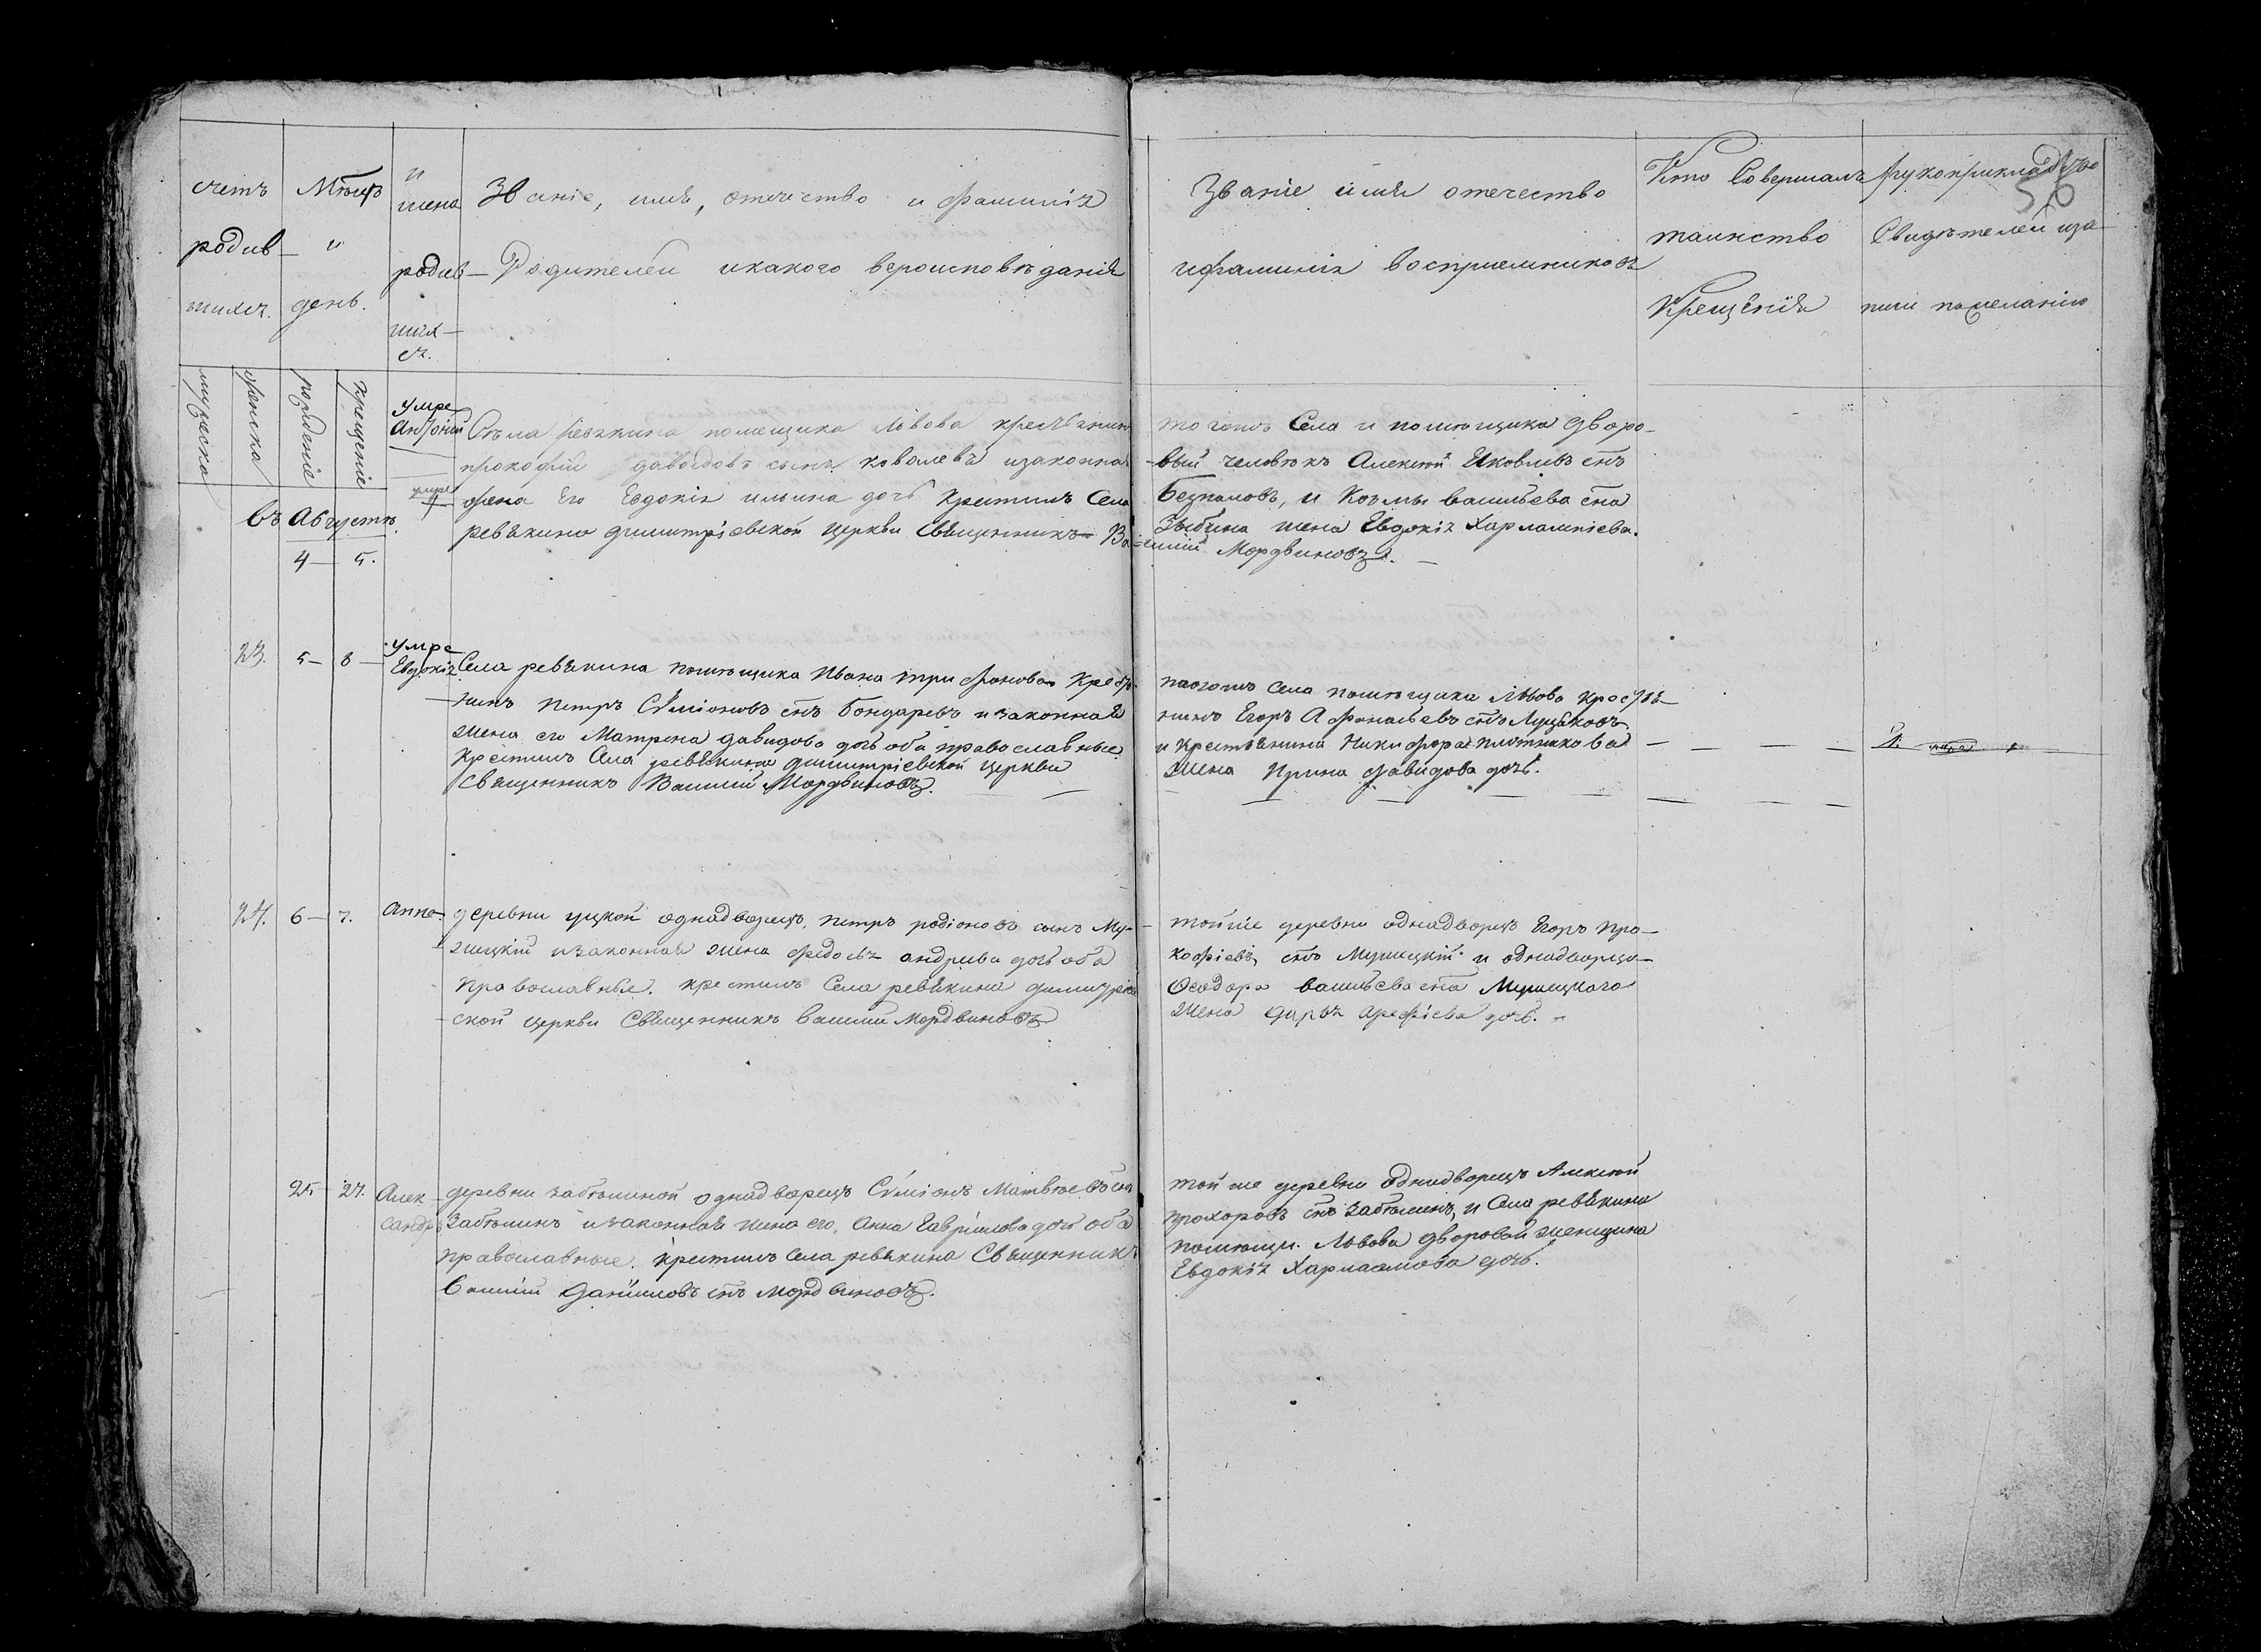 счетъ Мѣсцъ и мена Званіе, имя, отечество и фамилія
родив— и родив— Родителей икакого вероисповѣданія
шихся. день. ших— ся.
Званіе имя отечество
ифамилія восприемниковъ
Кто Совершалъ
таинство
Крещенія
рукоприкладство
Свидѣтелей иза—
писи пожеланію
56
мужеска
женска
рожденіе
крещеніе
въ Августѣ
4— 5.
умре
Антоній Села ревякина помещика Львова крестьянинъ
прокофій давыдовъ сынъ ковалевъ изаконная
умре
жена Его Евдокія ильина дочь Крестилъ Села
ревякина димитріевской церкви Священникъ Ва
тогожъ Села и помѣщика дворо—
вый человѣкъ Алексѣй Яковлевъ снъ
, и Козмы васильева сна
Зыбина жена Евдокія Харлампіева.
силій Мордвиновъ.
23. 5— 8—
умре
Евдокія Села ревякина помѣщика Ивана трифонова Крестья
нинъ Петръ Сѵміоновъ снъ Бондаревъ изаконная
жена его Матрона давидова дочь оба православные
Крестилъ Села ревякина димитріевской церкви
Священникъ Василій Мордвиновъ.
тогожъ села помѣщика Львова крестья—
нинъ Егоръ Афонасьевъ снъ
и Крестьянина Никифора плотникова
жена Ирина давидова дочь.
24. 6— 7. Анна. деревни уцкой однадворецъ, петръ родіоновъ сынъ Му—
жецкій изаконная жена федосья андрива дочь оба
православные. крестилъ Села ревякина димитріев
ской церкви Священникъ василій Мордвиновъ
тойже деревни однадворецъ Егоръ Про—
кофіевъ, снъ Мужецкій и однадворца—
Феодора васильева сна Мужецкого
жена дарья Арефіева дочь.
25— 27. Алек— деревни забѣлиной однадворецъ Сѵміонъ Матвѣевъ снъ
сандръ Забѣлинъ изаконная жена его, Анна Гавріилова дочь оба
православные. крестилъ Села ревякина Священникъ
Василій Даніиловъ снъ Мордвиновъ.
той же деревни Однодворецъ Алексѣй
прохоровъ снъ Забѣлинъ, и Села ревякина
помѣщи. Львова дворовой женщина
Евдокія Харламова дочь.